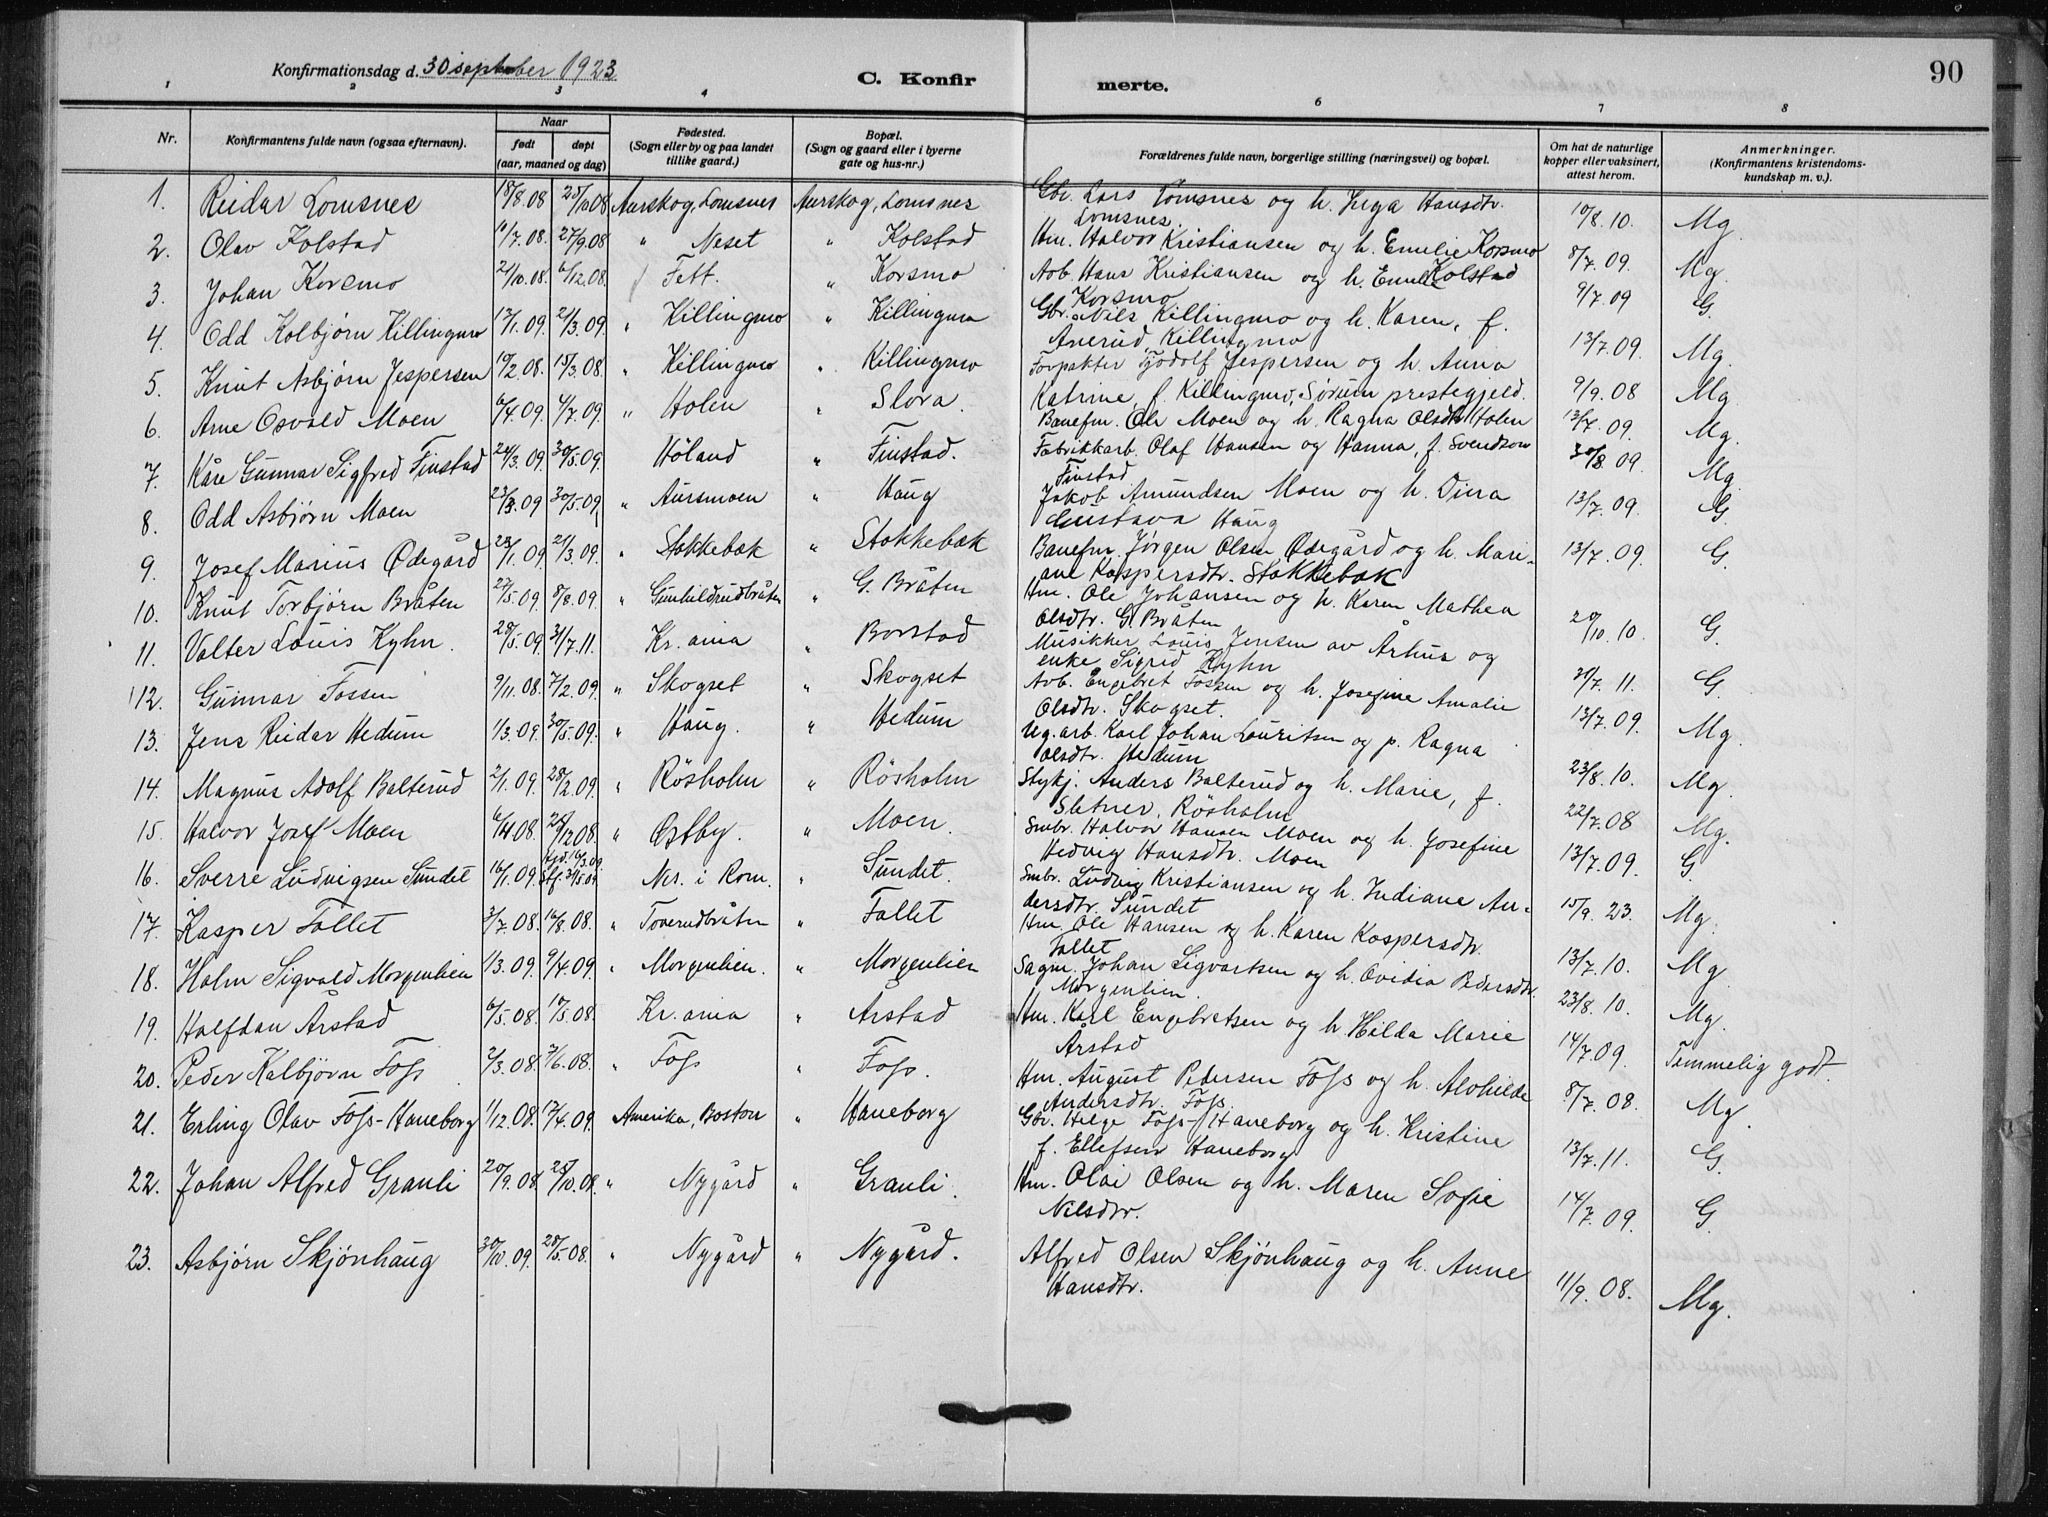 90
Konfirmationsdag d. 30 september 1923
C. Konfirmerte.
1 2 3 4 6 7 8
Nr. Konfirmantens fulde navn (ogsaa efternavn). Naar født døpt (aar, maaned og dag) Fødested. (Sogn eller by og paa landet tillike gaard.) Bopæl. (Sogn og gaard eller i byerne gate og hus-nr.) Forældrenes fulde navn, borgerlige stilling (næringsvei) og bopæl. Om hat de naturlige kopper eller vaksinert, attest herom. Anmerkninger. (Konfirmantens kristendoms-kundskap m. v.).
1. Reidar Lomsnes 18/8.08 25/10 08 Aurskog, Lomsnes Aurskog, Lomsnes Gbr. Lars Lomsnes og h. Inga Hansdtr. Lomsnes. 10/8.10. Mg.
2. Olav Kolstad /7.08. 27/9.08 " Neset " Kolstad Hm. Halvor Kristiansen og h. Emelie Korsmo Kolstad 8/7.09. Mg.
3. Johan Korsmo 21/10.08. 6/12.08. Fett. " Korsmo Arb. Hans Kristiansen og h. Emelie Korsmo 9/7.09 G.
4. Odd Kolbjørn Killingmo 17/1.09. 21/3.09. " Killingmo " Killingmo Gbr. Nils Killingmo og h. Karen, f. Anerud, Killingmo 13/7.09. Mg.
5. Knut Asbjørn Jespersen 10/2.08. 15/3.08. " Killingmo " Killingmo Forpakter Tjodolf Jespersen og h. Anna Katrine, f. Killingmo, Sørum prestegjeld. 9/9.08 Mg.
6. Arne Osvald Moen 6/4.09. 4/7.09. " Holen " Slora. Banefm. Ole Moen og h. Ragna Olsdtr. Holen 13/7.09. Mg.
7. Kåre Gunnar Sigfred Finstad 24/3.09. 30/5.09. Høland " Finstad. Fabrikkarb. Olaf Hansen og Hanna, f. Svendsen Finstad 30/8.09. Mg.
8. Odd Asbjørn Moen 23/3.09 30/5.09. " Aursmoen " Haug Jakob Amundsen Moen og h. Dina Gustava Haug 13/7.09. G.
9. Josef Marius Ødegård 23/1.09 21/3.09. " Stokkebæk " Stokkebæk Banefm. Jørgen Olsen Ødegård og h. Mariane Kaspersdtr. Stokkebæk 13/7.09. G.
10. Knut Torbjørn Bråten 22/5.09. 8/8.09. " Gunhildrudbråten " G. Bråten Hm. Ole Johansen og h. Karen Mathea Olsdtr. G. Bråten 20/10.10. G.
11. Valter Louis Kyhn. 28/5.09. 31/7.11. Kr.ania " Borstad Musikker Louis Jensen av Århus og enke Sigrid Kyhn
12. Gunnar Fossen 9/11.08. 7/2.09. " Skogset " Skogset Arb. Engebret Fossen og h. Josefine Amalie Olsdtr. Skogset. /7.11. G.
13. Jens Reidar Hedum 1/3.09. 30/5.09. " Haug. " Hedum Ug. arb. Karl Johan Lauritsen og p. Ragna Olsdtr. Hedum 13/7.09. Mg.
14. Magnus Adolf Balterud 2/1.09. 28/2.09. " Røsholm " Røsholm Stykj. Anders Balterud og h. Marie, f. Sletner, Røsholm 23/8.10. Mg.
15. Halvor Josef Moen 6/11 08. /12 08. " Østby. " Moen. Smbr. Halvor Hansen Moen og h. Josefine Hedvig Hansdtr. Moen 22/7.08 Mg.
16. Sverre Ludvigsen Sundet 16/1.09. Hjd. 16/3.09. Stf. 31/5.09 Ner. i Rom. " Sundet. Smbr. Ludvig Kristiansen og h. Indiane Andersdtr. Sundet 13/7.09. G.
17. Kasper Tollet 3/7.08. 16/8.08. " Toverudbråten " Follet Hm. Ole Hansen og h. Karen Kaspersdtr. Follet 15/9.23. Mg.
18. Holm Sigvald Morgenlien 1/3.09. 9/4.09. " Morgenlien. " Morgenlien Sagm. Johan Sigvartsen og h. Ovidia Pedersdtr. Morgenlien. 13/7.10. Mg.
19. Halfdan Årstad 6/5.08. 17/5.08. Kr.ania " Årstad Hm. Karl Engebretsen og h. Hilda Marie Årstad 23/8.10. Mg.
20. Peder Kolbjørn Foss 2/3.08. 7/6.08. " Foss " Foss. Hm. August Pedersen Foss og h. Alvhilde Andersdtr. Foss. 14/7.09. Temmelig godt.
21. Erling Olav Foss-Haneborg 1/12.08. 17/4.09. Amerika, Boston " Haneborg Gbr. Helge Foss-Haneborg og h. Kristine f. Ellefsen Haneborg 8/7.08. Mg. 13/7.11. G.
22. Johan Alfred Granli 20/9.08. 25/10.08. " Nygård " Granli. Hm. Olai Olsen og h. Maren Sofie Nilsdtr. 14/7.09. G.
23. Asbjørn Skjønhaug 30/10.09. 28/5.08. " Nygård " Nygård. Alfred Olsen Skjønhaug og h. Anne Hansdtr. 11/9.08. Mg.